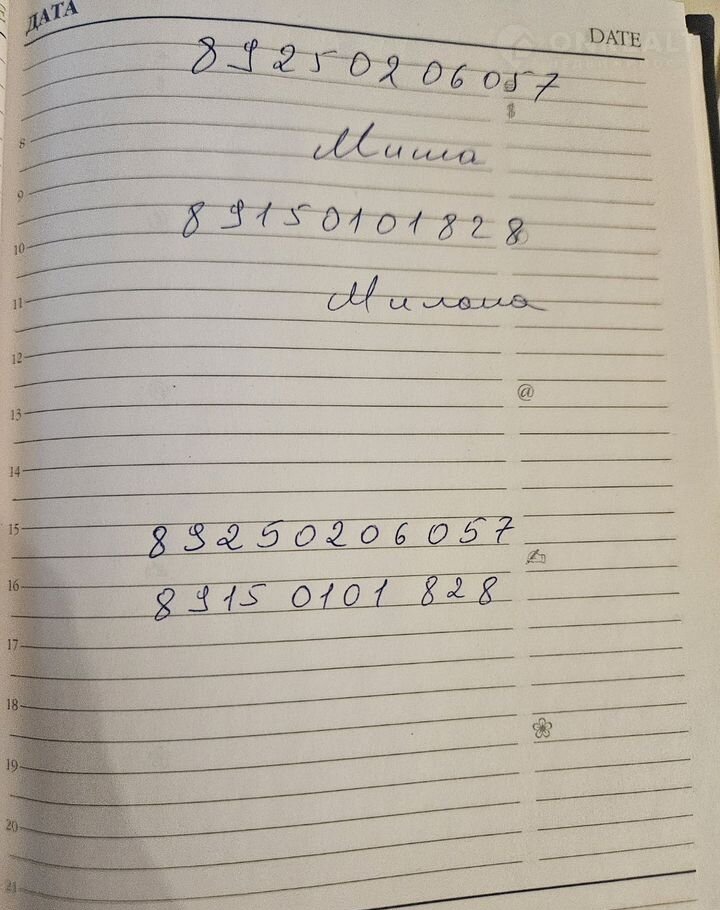 ДАТА
DATE
89250206057
Миша
8
9
89150101828
10
Милана
11
12
@
13
14
15
89250206057
16
8915 0101 828
17
18
19
20
21